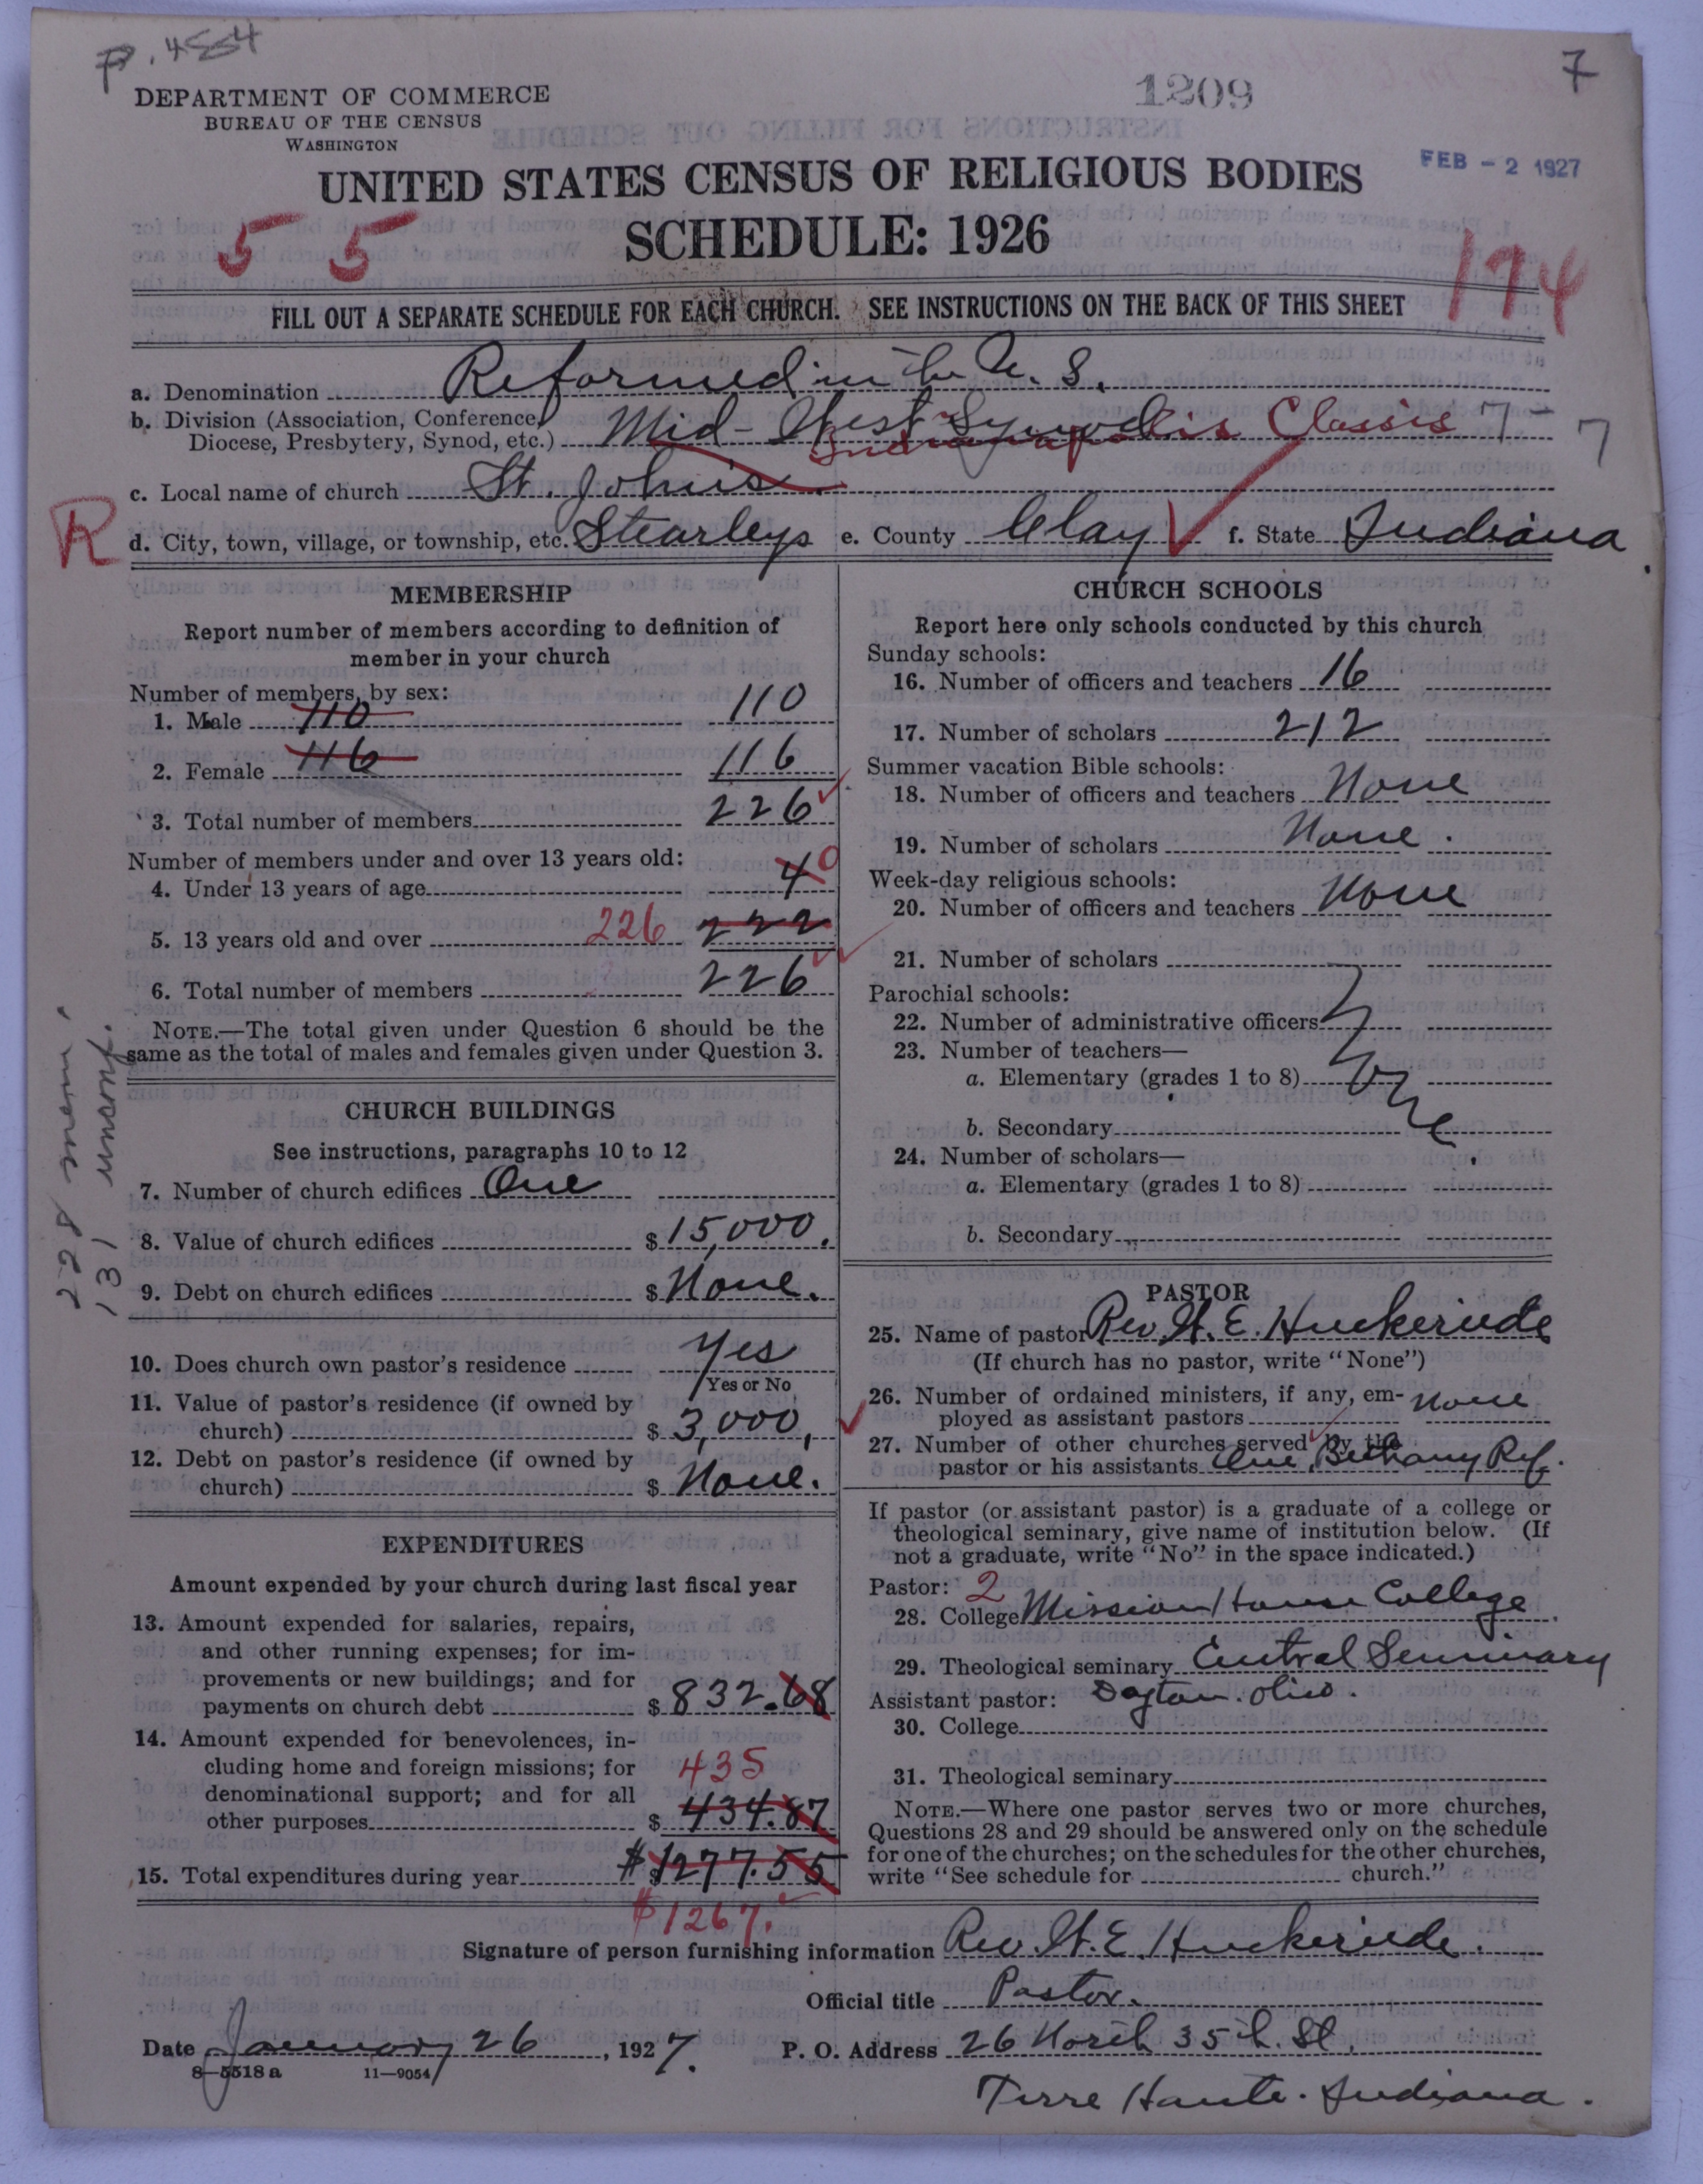 P. 484
7
DEPARTMENT OF COMMERCE
BUREAU OF THE CENSUS
WASHINGTON
1209
FEB - 2 1927
UNITED STATES CENSUS OF RELIGIOUS BODIES
SCHEDULE: 1926
5 5
174
FILL OUT A SEPARATE SCHEDULE FOR EACH CHURCH. SEE INSTRUCTIONS ON THE BACK OF THIS SHEET
a. Denomination Reformed in the U. S.
b. Division (Association, Conference,
Diocese, Presbytery, Synod, etc.) Mid-West Synod Indianapolis Classis 7- 7
c. Local name of church St. John's
R
d. City, town, village, or township, etc. Stearleys e. County Clay f. State Indiana
MEMBERSHIP
Report number of members according to definition of
member in your church
Number of members, by sex:
1. Male 110 110
2. Female 116 116
3. Total number of members 226
Number of members under and over 13 years old:
4. Under 13 years of age 4 0
5. 13 years old and over 226 222
6. Total number of members 226
NOTE.—The total given under Question 6 should be the
same as the total of males and females given under Question 3.
228 mem.
131 unconf.
CHURCH BUILDINGS
See instructions, paragraphs 10 to 12
7. Number of church edifices One
8. Value of church edifices $ 15,000.
9. Debt on church edifices $ None.
10. Does church own pastor's residence Yes
Yes or No
11. Value of pastor's residence (if owned by
church) $ 3,000,
12. Debt on pastor's residence (if owned by
church) $ None.
EXPENDITURES
Amount expended by your church during last fiscal year
13. Amount expended for salaries, repairs,
and other running expenses; for im-
provements or new buildings; and for
payments on church debt $ 832.68
14. Amount expended for benevolences, in-
cluding home and foreign missions; for
denominational support; and for all
435
other purposes $ 434.87
15. Total expenditures during year $ $1277.55
$1267.
CHURCH SCHOOLS
Report here only schools conducted by this church
Sunday schools:
16. Number of officers and teachers 16
17. Number of scholars 212
Summer vacation Bible schools:
18. Number of officers and teachers None
19. Number of scholars None.
Week-day religious schools:
20. Number of officers and teachers None
21. Number of scholars
Parochial schools:
22. Number of administrative officers
23. Number of teachers—
a. Elementary (grades 1 to 8)
None
b. Secondary
24. Number of scholars—
a. Elementary (grades 1 to 8)
b. Secondary
PASTOR
25. Name of pastor Rev. H. E. Huckeriede
(If church has no pastor, write "None")
26. Number of ordained ministers, if any, em-
ployed as assistant pastors None
27. Number of other churches served by the
pastor or his assistants One, Bethany Ref.
If pastor (or assistant pastor) is a graduate of a college or
theological seminary, give name of institution below. (If
not a graduate, write "No" in the space indicated.)
Pastor: 2
28. College Mission House College
29. Theological seminary Central Seminary
Assistant pastor: Dayton. Ohio.
30. College
31. Theological seminary
NOTE.—Where one pastor serves two or more churches,
Questions 28 and 29 should be answered only on the schedule
for one of the churches; on the schedules for the other churches,
write "See schedule for church."
Signature of person furnishing information Rev. H. E. Huckeriede.
Official title Pastor.
Date January 26, 1927.
P. O. Address 26 North 35th. St.
8—5518 a 11—9054
Terre Haute. Indiana.